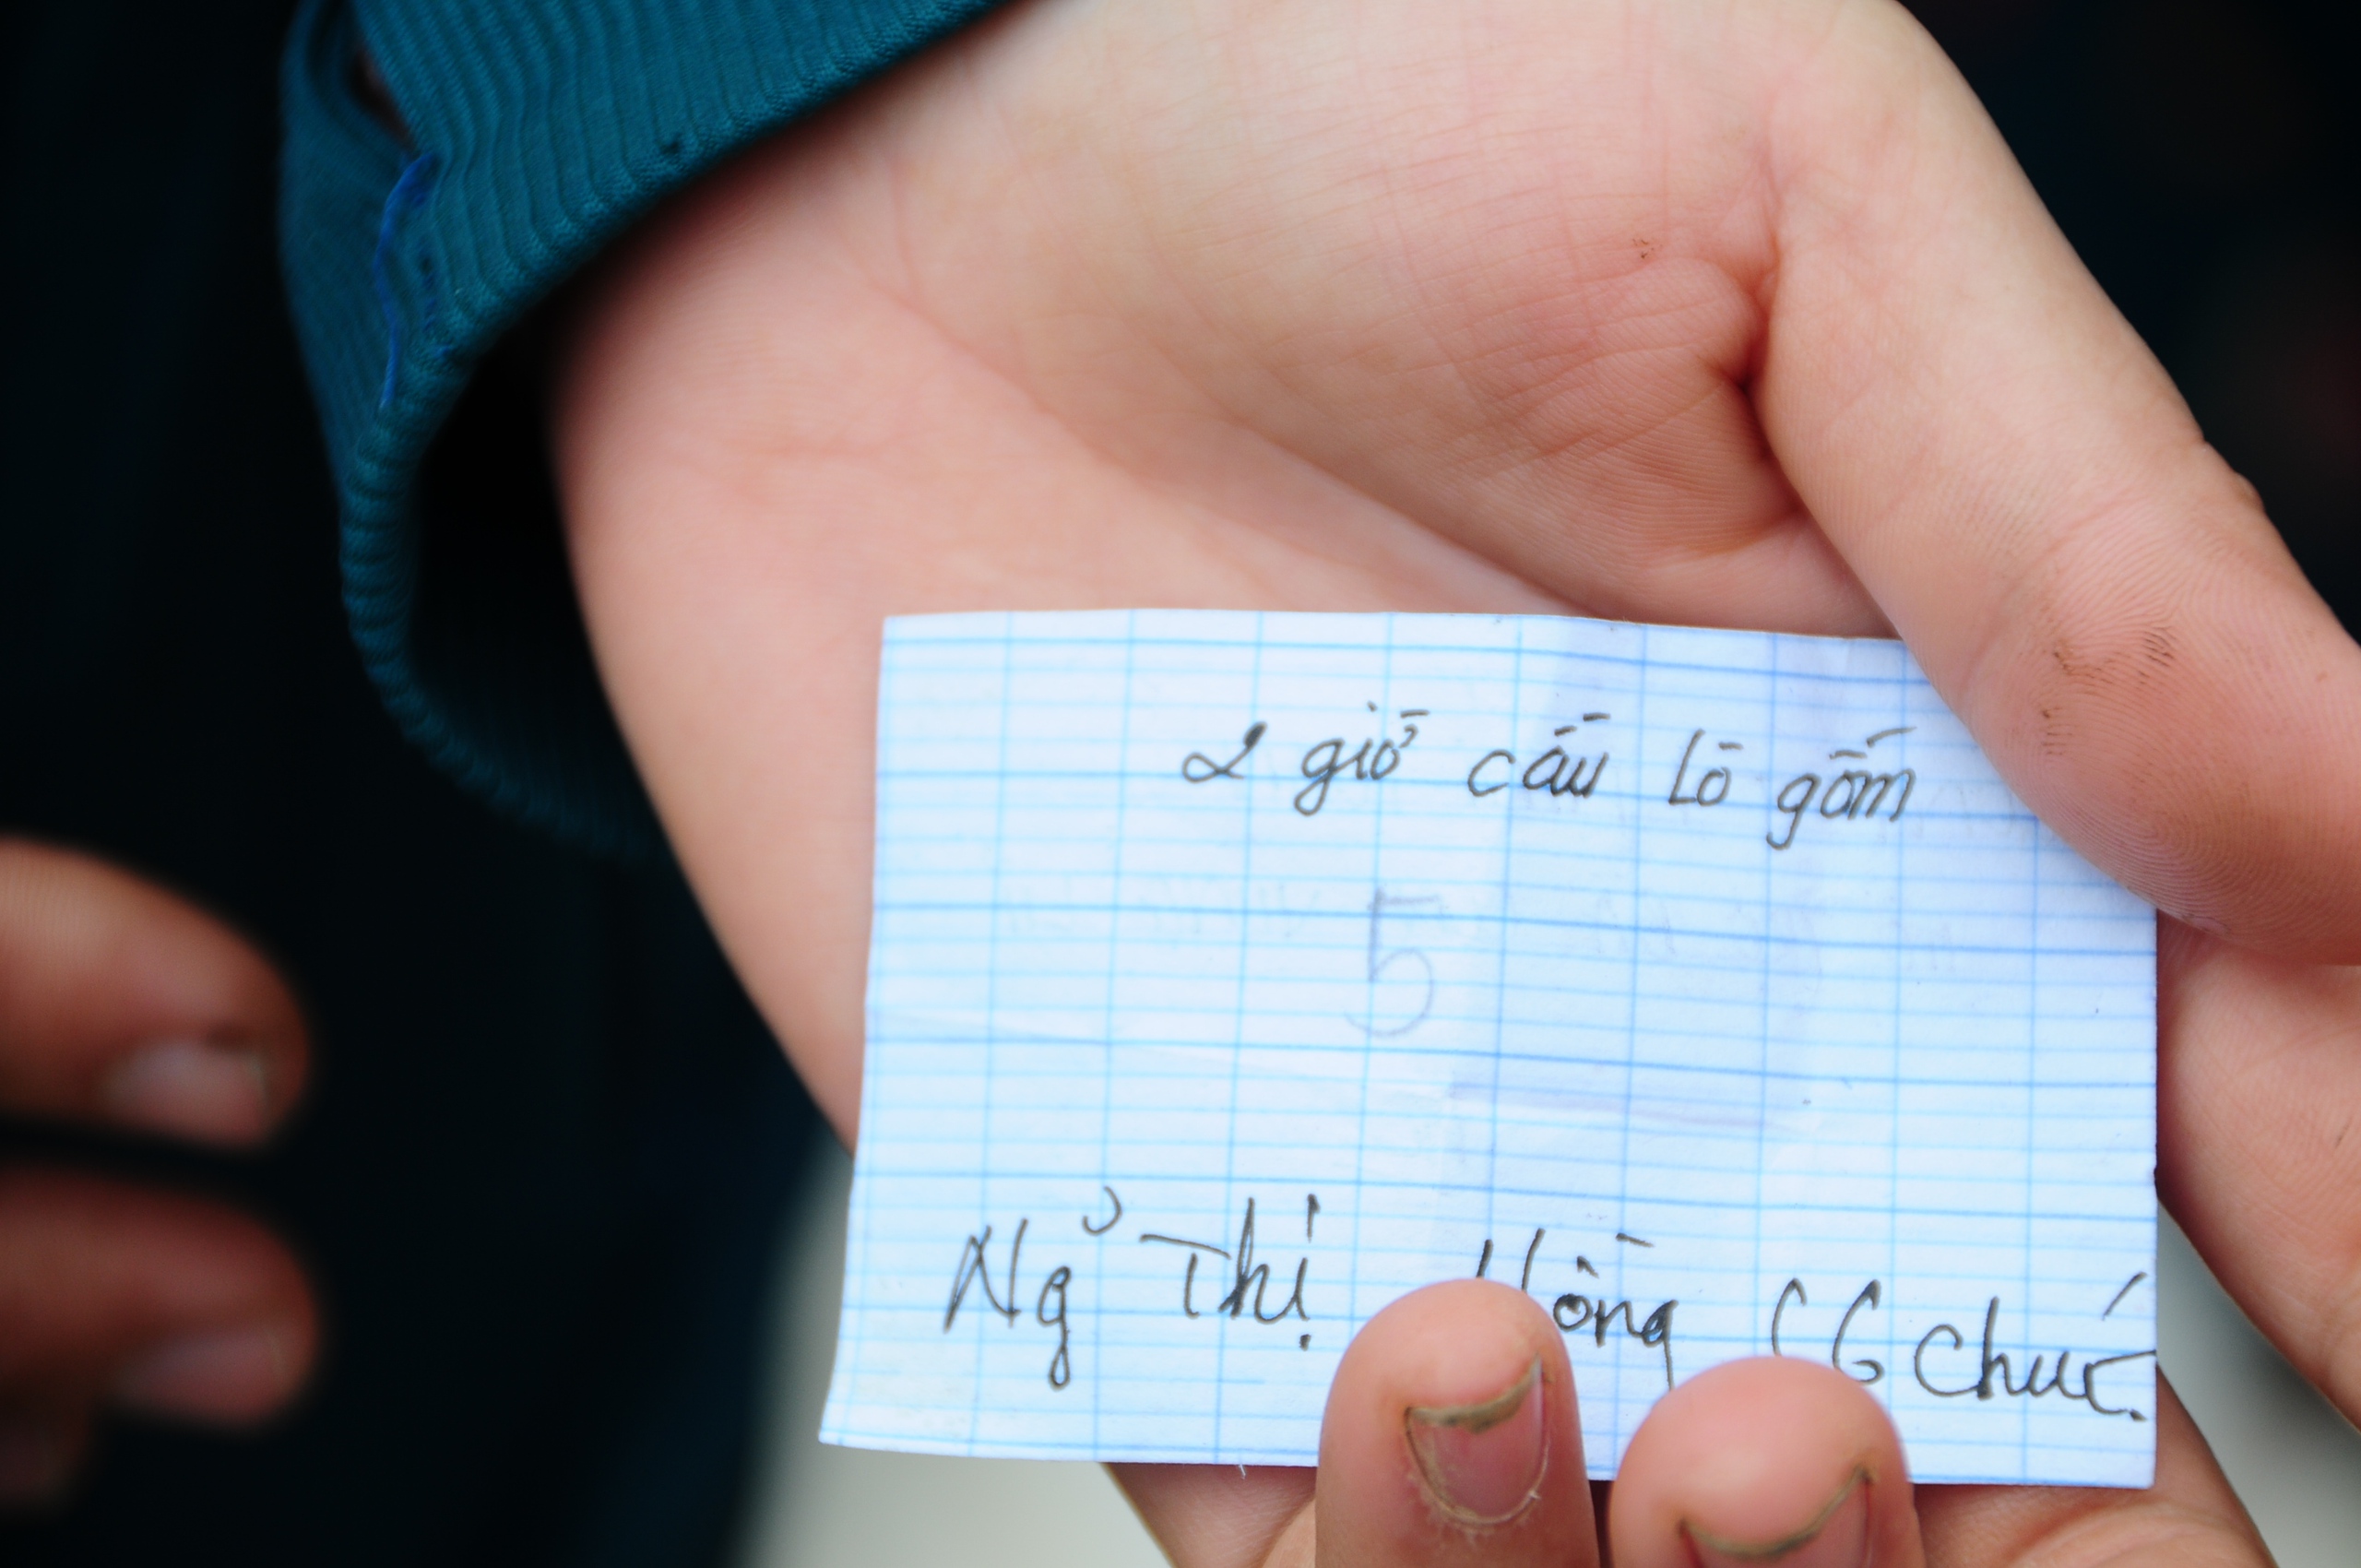 2 giỏ cấu lò gốm
5
Ngỷ Thị Hồng CGchức.